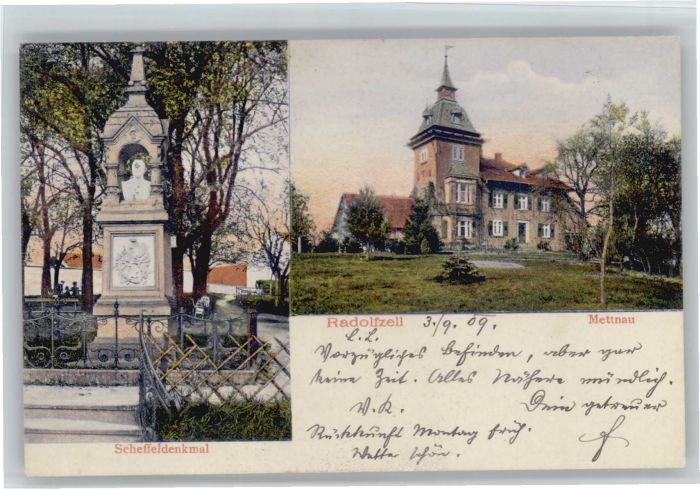 Radolfzell 3./9. 09. Mettnau
L. L.
Vorzügliches Befinden, aber gar
keine Zeit. Alles Nähere mündlich.
V. K. Dein getreuer
Rückkunft Montag früh.
Wetter schön.
Scheffeldenkmal